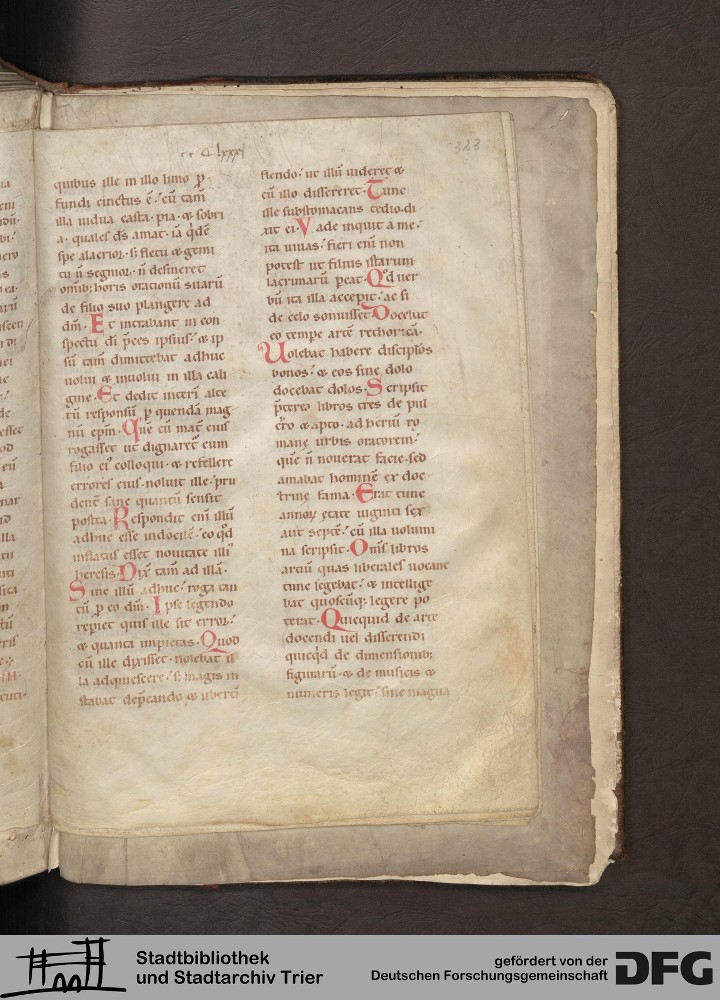 cc lxxxi
323
quibus ille in illo limo p̱
fundi cinctus ē. cū tam̄
illa uidua casta. pia. & sobri
a. quales ds̄ amat. iā qdē
spe alacrior. sꝫ fletu & gemi
tu n̄ segnior. n̄ desineret
om̄ibꝫ horis orationū suarū
de filio suo plangere ad
dm̄. Et intrabant in con
spectu di p̄ces ipsius. & ip
sū tam̄ dimittebat adhuc
uolui & inuolui in illa cali
gine. Et dedit interī alte
rū responsū p̱ quendā mag
nū ep̄m. Quē cū mat̄ eiꝰ
rogasset ut dignaret̄ cum
filio eiꝰ colloqui. & refellere
errores eius. noluit ille. pru
dent̄ sane quantū sensit
postea. Respondit enī illū
adhuc esse indocilē. eo qd
inflatus esset nouitate illiꝰ
heresis. Dix̄ tam̄ ad illā.
Sine illū adhuc. roga tan
tū p̱ eo dm̄. Ipse legendo
rep̄iet quis ille sit error.
& quanta impietas. Quod
cū ille dixisset. nolebat il
la adquiescere. sꝫ magis in
stabat dep̄cando & ubertī
flendo. ut illū uideret &
cū illo dissereret. Tunc
ille substomacans tedio. di
xit ei. Vade inquit a me.
ita uiuas. fieri enī non
potest ut filius istarum
lacrimarū p̱eat. Qd uer
bū ita illa accepit. ac si
de celo sonuisset. Docebat
eo tempe artē rethoricā.
Uolebat habere discipłos
bonos. & eos sine dolo
docebat dolos. Scripsit
p̄terea libros tres de pul
cro & apto. ad heriū ro
mane urbis oratorem.
quē n̄ nouerat facie. sed
amabat hominē ex doc
trine fama. Erat tunc
annoꝝ etate uiginti sex
aut septē. cū illa uolumi
na scripsit. Om̄s libros
artiū quas liberales uocant
tunc legebat. & intellige
bat quoscūqꝫ legere po
terat. Quicquid de arte
docendi uel disserendi
quicqd de dimensionibꝫ
figurarū. & de musicis &
numeris legit. sine magna
Stadtbibliothek
und Stadtarchiv Trier
gefördert von der
Deutschen Forschungsgemeinschaft
DFG